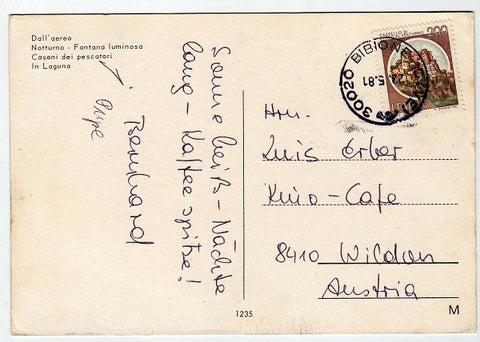 Dall'aereo
Notturno - Fontana luminosa
Casoni dei pescatori
In Laguna
Sonne heiß - Nächte
lang - Kaffee spitze!
Bernhard
200
30020 BIBIONE
5.81
Hrn.
Luis Erber
Kino-Cafe
8410 Wildon
Austria
1235
M